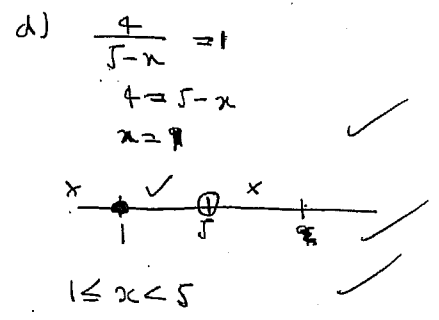 d) 4/(5-x) = 1
4 = 5-x
x = 1
x ✓ x
1 5
1 ≤ x < 5